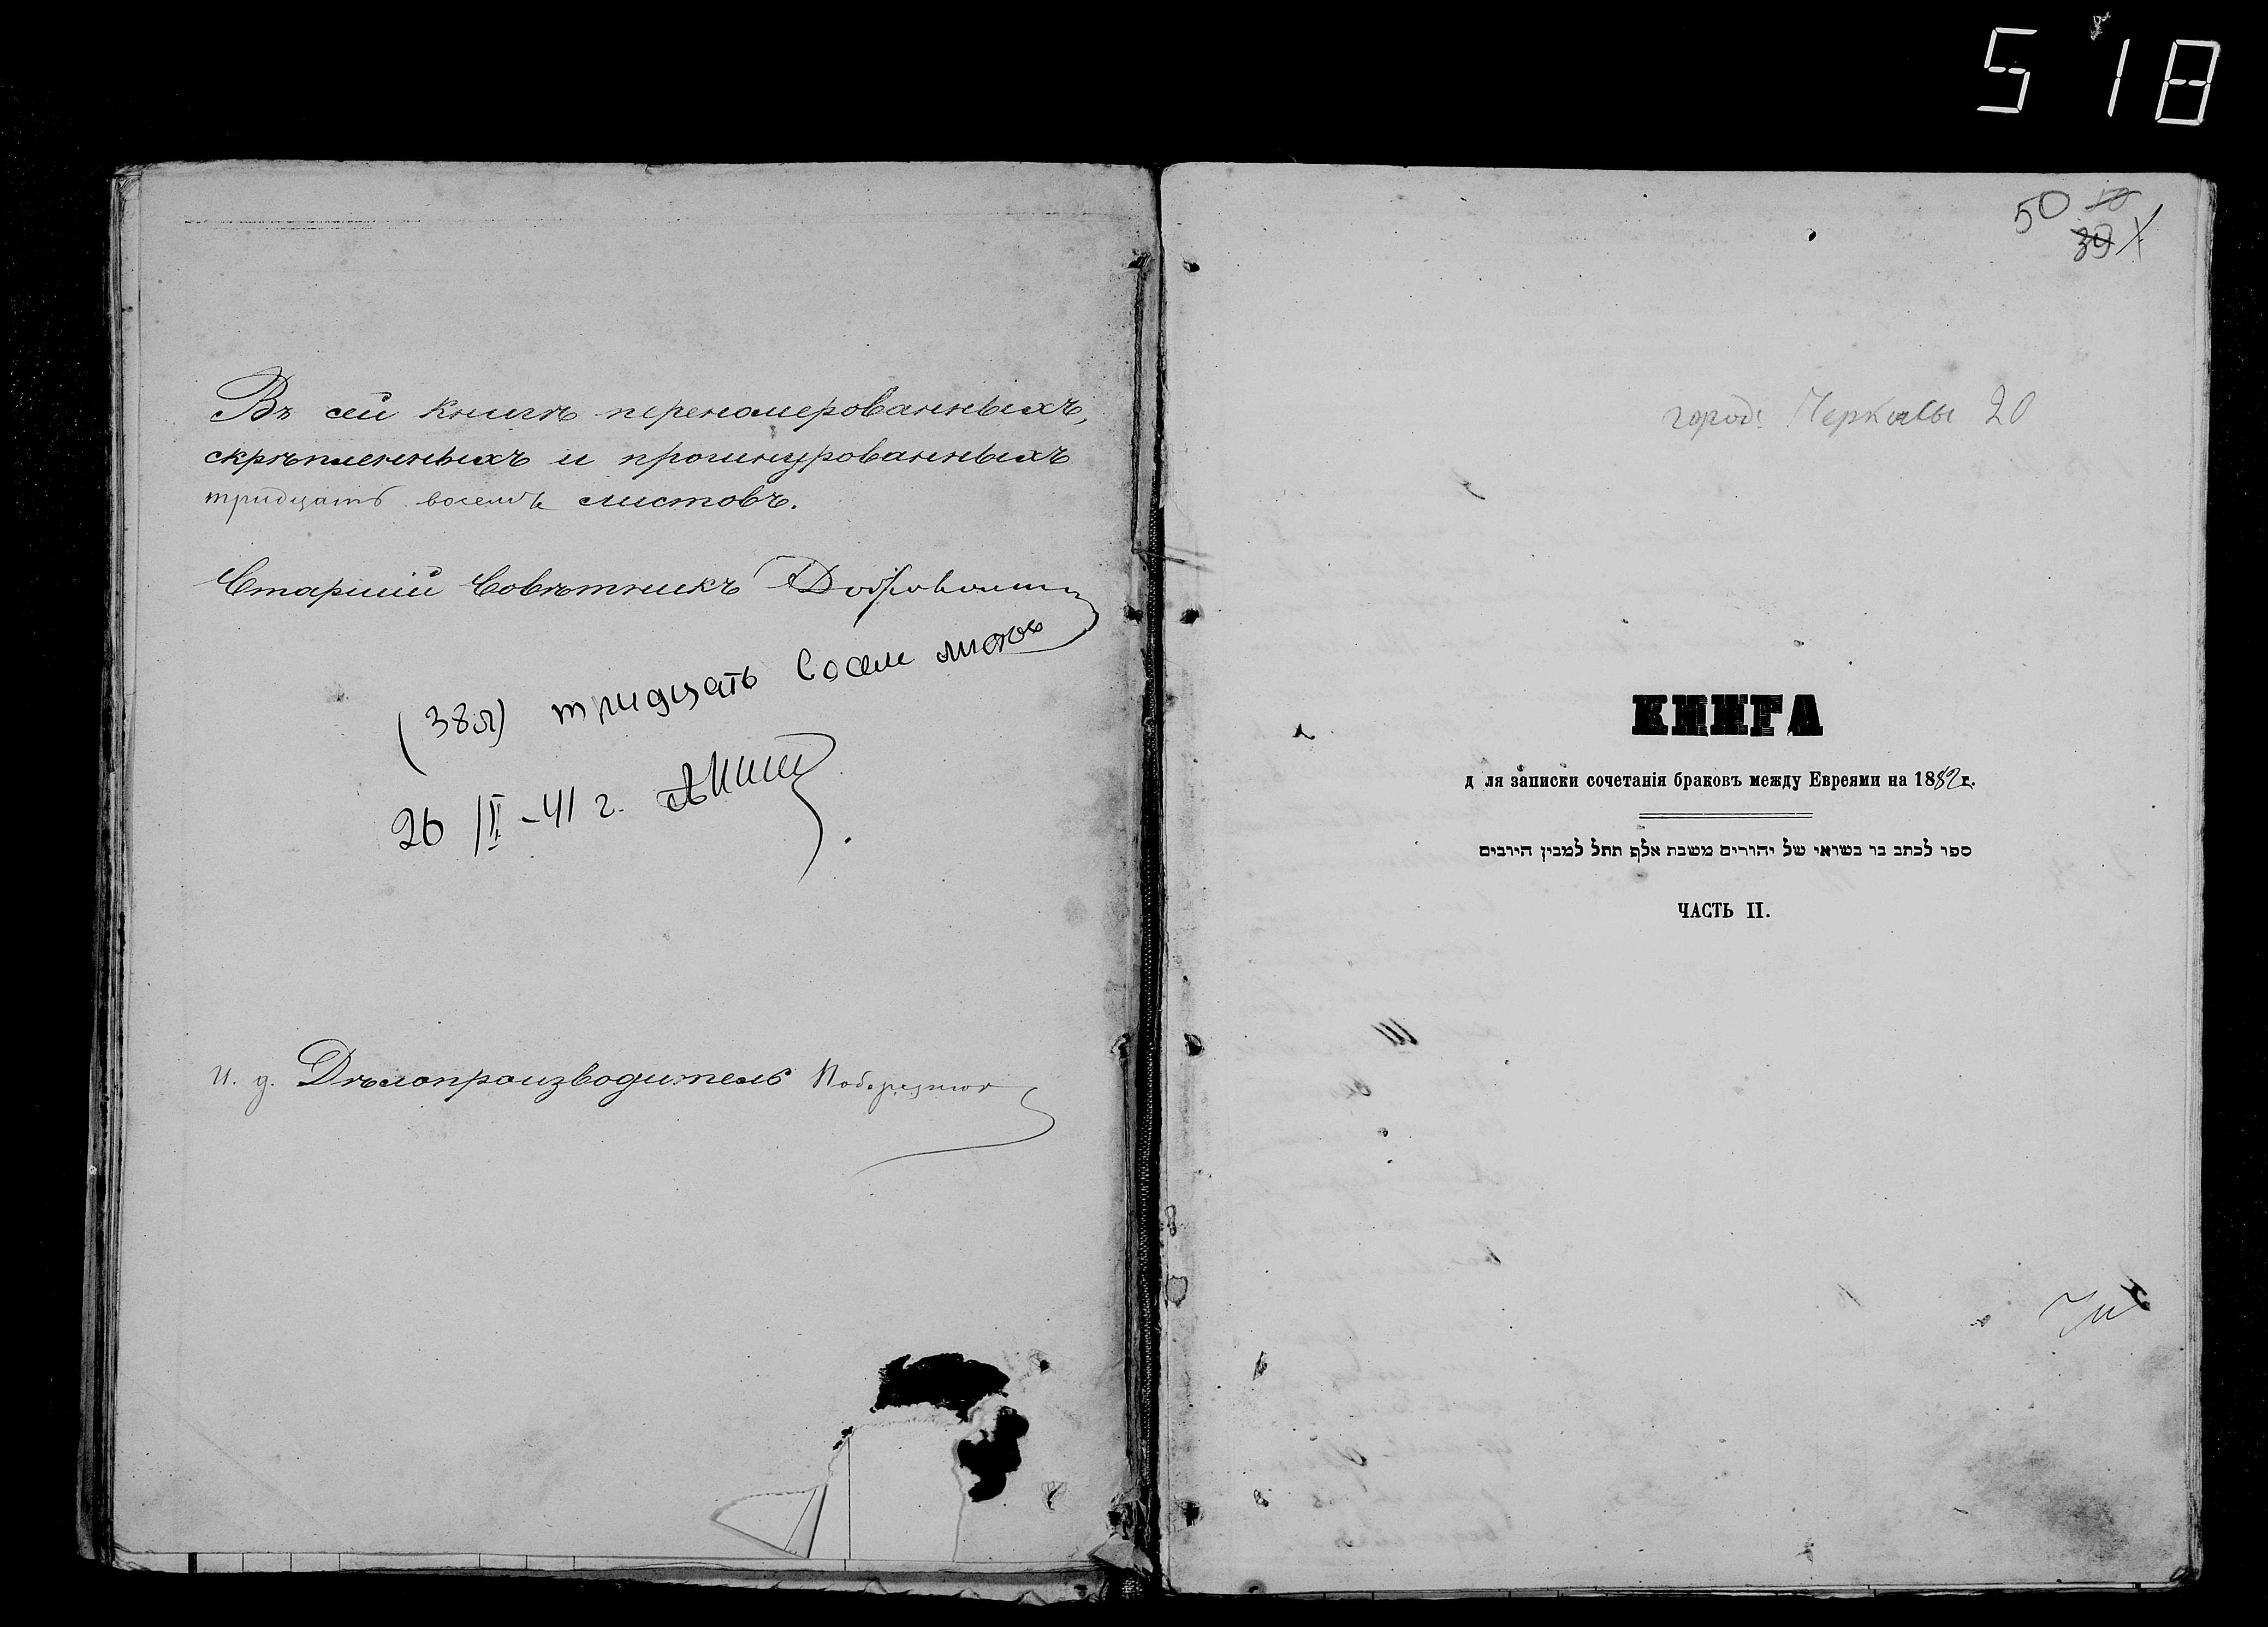 518
Въ сей книгѣ перенумерованныхъ,
скрѣпленныхъ и прошнурованныхъ
тридцать восемь листовъ.
Старшій Совѣтникъ
(38л) тридцать восем листов
26/II-41 г.
И. д. Дѣлопроизводитель
50
39
город: Черкасы 20
КНИГА
д ля записки сочетанія браковъ между Евреями на 1882 г.
ספר לכתב בו בשואי של יהורים משבת אלף תתל למבין היובים
ЧАСТЬ II.